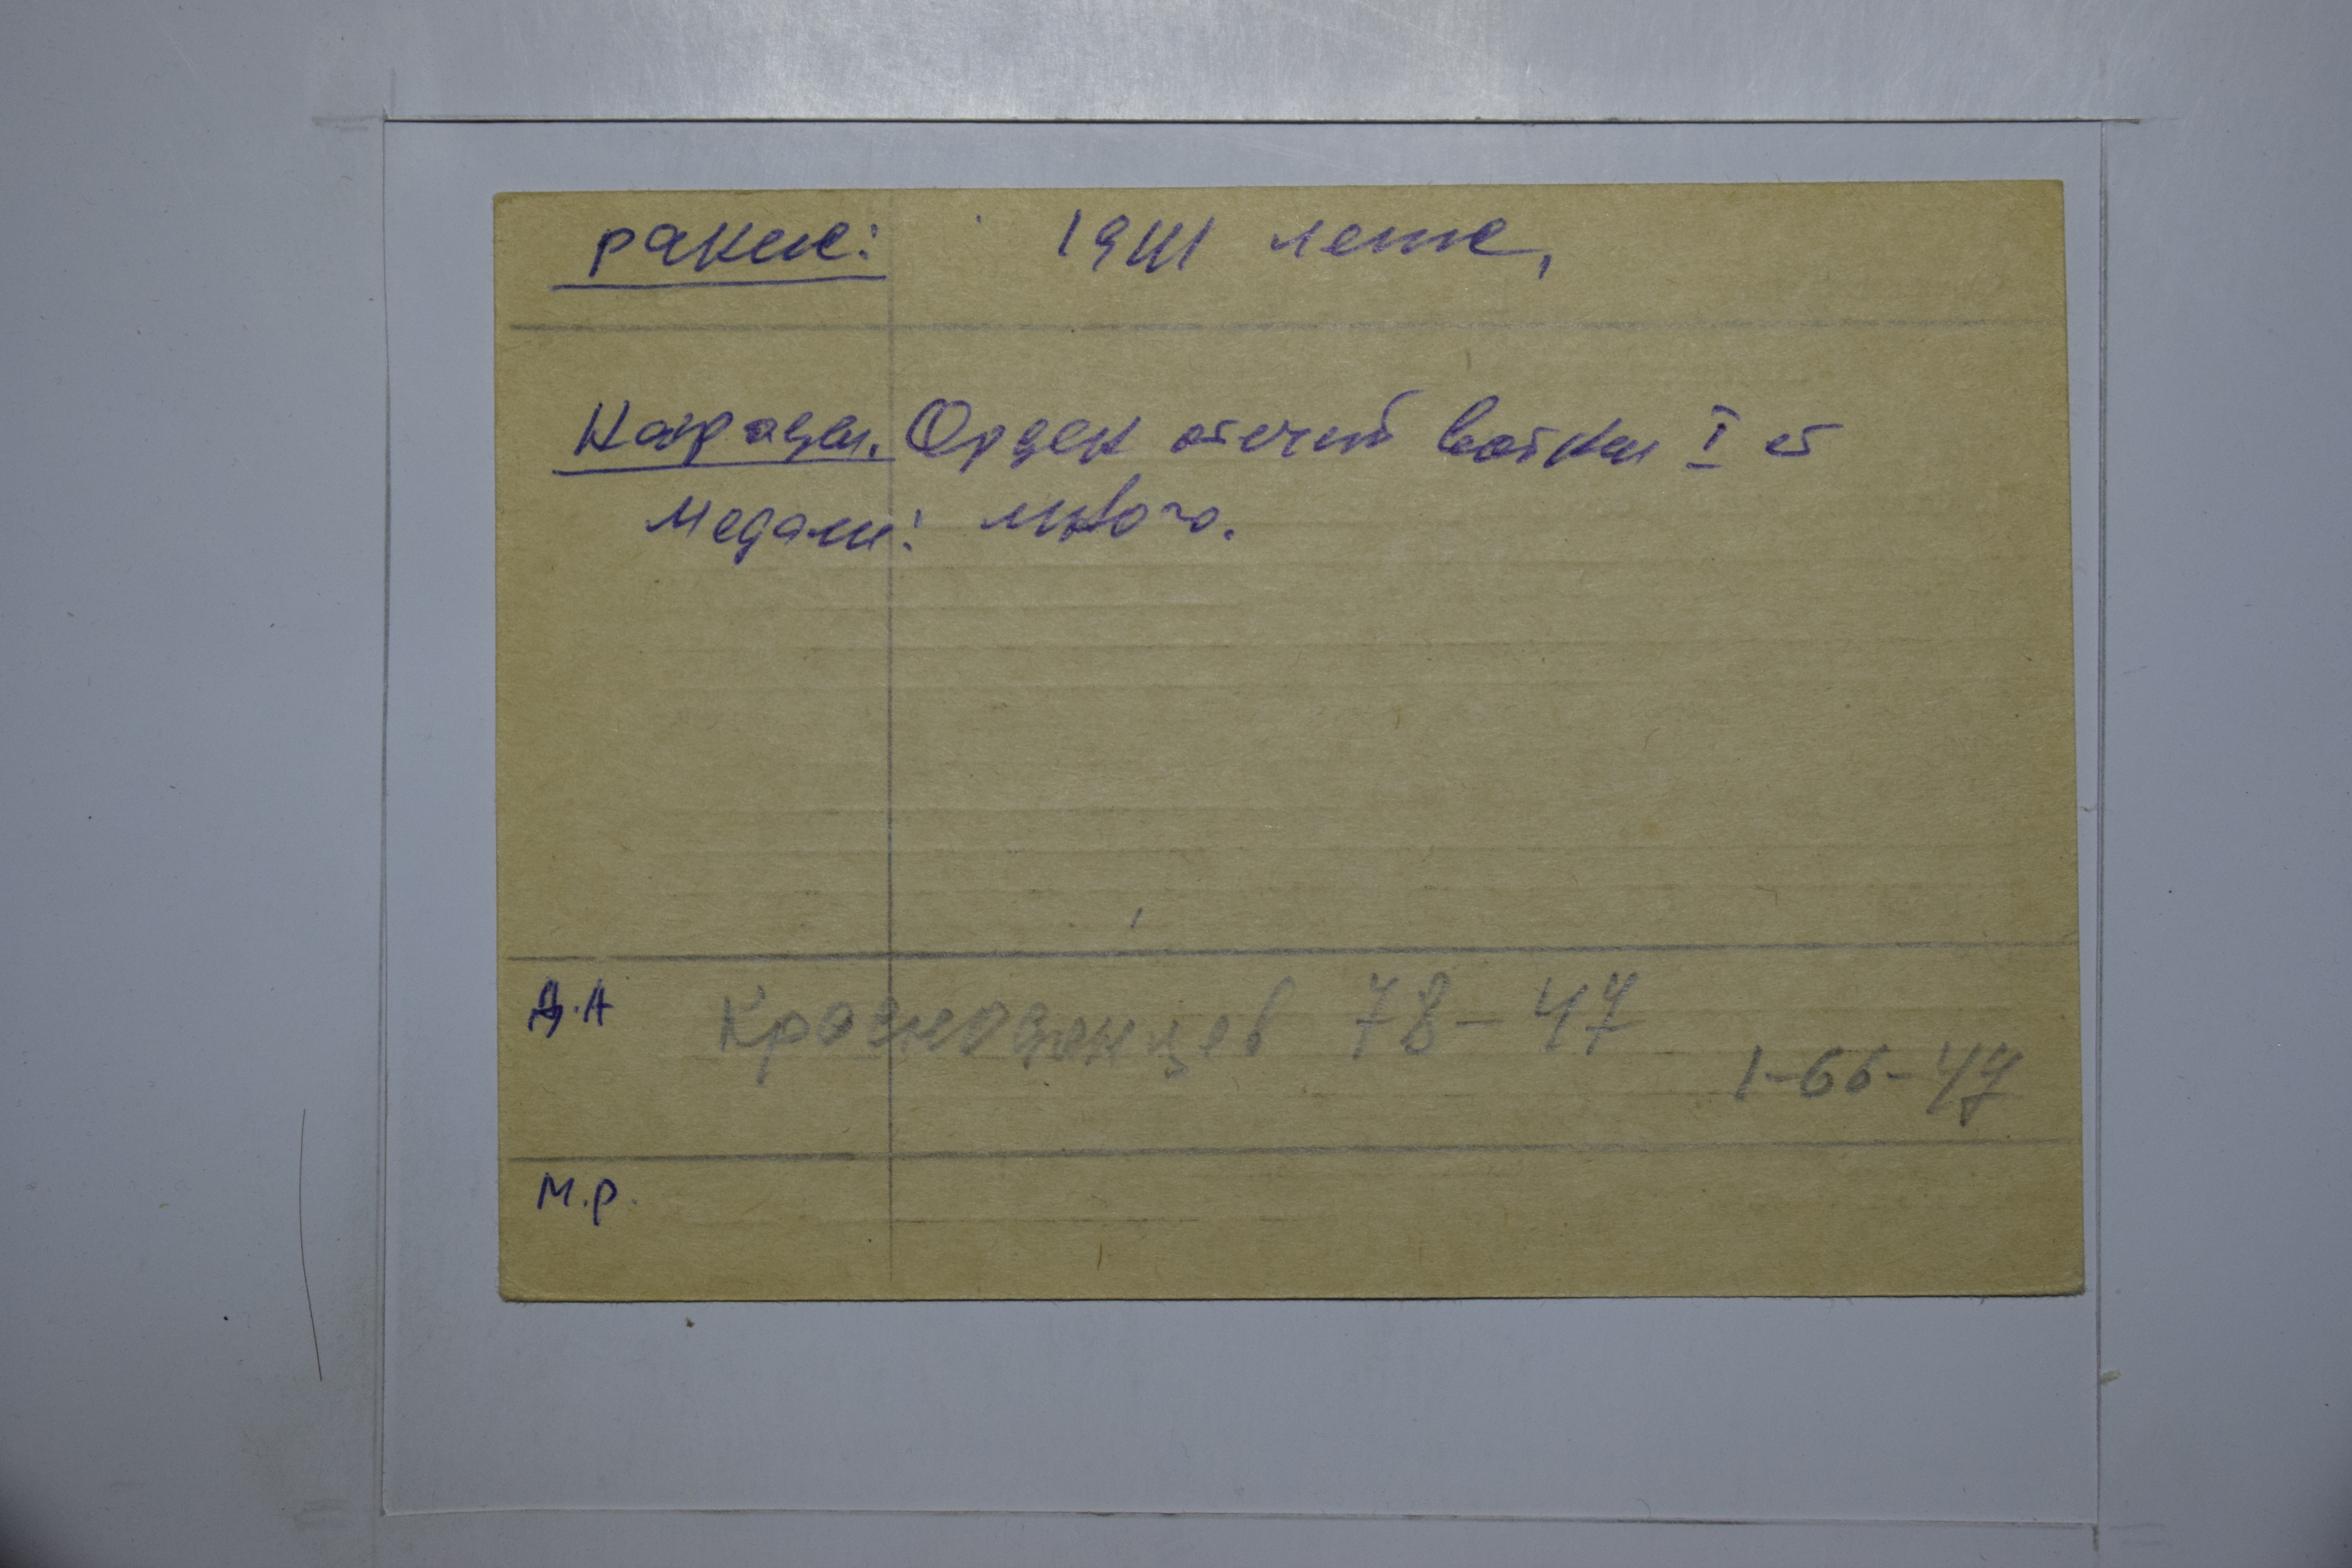 ранение: 1941 лето,
Награды. Орден отечест войны I ст
Медали: много.
Д.А Краснодонцев 78-47
1-66-47
М.р.